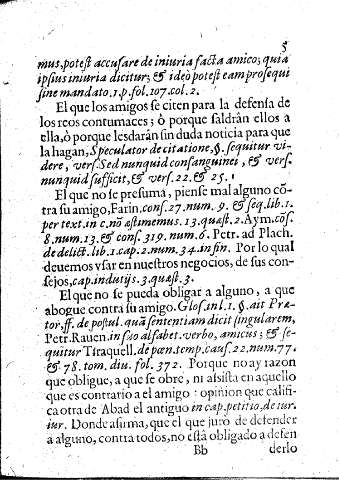 5
mus, potest accusare de iniuria facta amico; quia
ipsius iniuria dicitur; & ideò potest eam prosequi
sine mandato. 1. p. fol. 107. col. 2.
El que los amigos se citen para la defensa de
los reos contumaces; ò porque saldràn ellos a
ella, ò porque lesdaràn sin duda noticia para que
la hagan, Speculator de citatione, §. sequitur vi-
dere, vers. Sed nunquid consanguinei, & vers.
nunquid sufficit, & vers. 22. & 25.
El que no se presuma, piense mal alguno cõ-
tra su amigo, Farin. cons. 27. num. 9. & seq. lib. 1.
per text. in c. nõ æstimemus. 13. quæst. 2. Aym. cõs.
8. num. 13. & cons. 319. num. 6. Petr. ad Plach.
de delict. lib. 1. cap. 2. num. 34. in fin. Por lo qual
deuemos vsar en nuestros negocios, de sus con-
sejos, cap. indutijs. 3. quæst. 3.
El que no se pueda obligar a alguno, a que
abogue contra su amigo. Glos. in l. 1. §. ait Præ-
tor, ff. de postul. quã sententiam dicit singularem,
Petr. Rauen. in suo alfabet. verbo, amicus; & se-
quitur Tiraquell. de pœn. temp. caus. 22. num. 77.
& 78. tom. diu. fol. 372. Porque no ay razon
que obligue, a que se obre, ni assista en aquello
que es contrario a el amigo: opinion que califi-
ca otra de Abad el antiguo in cap. petitio, de iur.
iur. Donde afirma, que el que jurò de defender
a alguno, contra todos, no està obligado a defen
Bb derlo